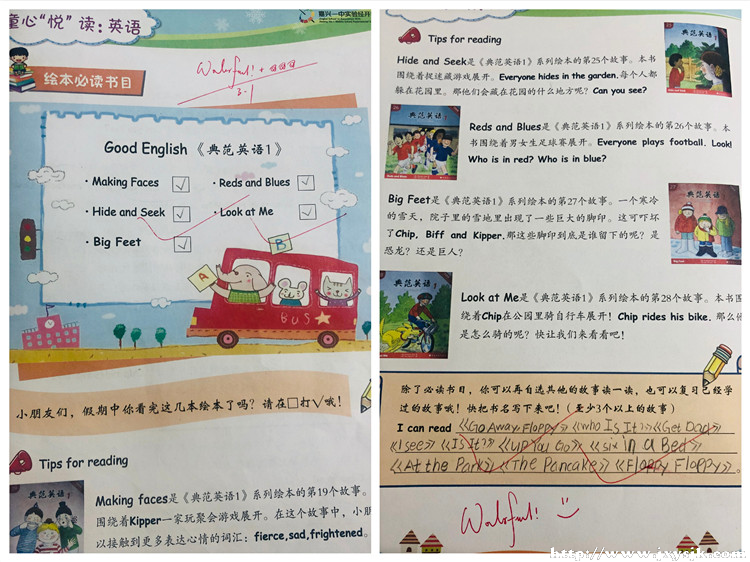 童心“悦”读：英语
嘉兴一中实验经开
绘本必读书目
Wonderful! +
3.1
Good English 《典范英语1》
· Making Faces
· Reds and Blues
· Hide and Seek
· Look at Me
· Big Feet
A
B
BUS
小朋友们，假期中你看完这几本绘本了吗？请在□打√哦！
Tips for reading
典范英语1
Making faces是《典范英语1》系列绘本的第19个故事。
围绕着Kipper一家玩聚会游戏展开。在这个故事中，小朋
以接触到更多表达心情的词汇：fierce,sad,frightened.
Tips for reading
Hide and Seek是《典范英语1》系列绘本的第25个故事。本书
围绕着捉迷藏游戏展开。Everyone hides in the garden.每个人都
躲在花园里。那他们会藏在花园的什么地方呢？Can you see?
典范英语1
典范英语1
Reds and Blues是《典范英语1》系列绘本的第26个故事。本
书围绕着男女生足球赛展开。Everyone plays football. Look!
Who is in red? Who is in blue?
Big Feet是《典范英语1》系列绘本的第27个故事。一个寒冷
的雪天，院子里的雪地里出现了一些巨大的脚印。这可吓坏
了Chip, Biff and Kipper.那这些脚印到底是谁留下的呢？是
恐龙？还是巨人？
典范英语1
典范英语1
Look at Me是《典范英语1》系列绘本的第28个故事。本书围
绕着Chip在公园里骑自行车展开！Chip rides his bike. 那么他
是怎么骑的呢？快让我们来看看吧！
除了必读书目，你可以再自选其他的故事读一读，也可以复习已经学
过的故事哦！快把书名写下来吧！（至少3个以上的故事）
I can read 《Go Away Floppy》《who Is It?》《Get Dad》
《I see》《Is It?》《Up You Go》《six in a Bed》
《At the Park》《The Pancake》《Floppy Floppy》。
Wonderful!